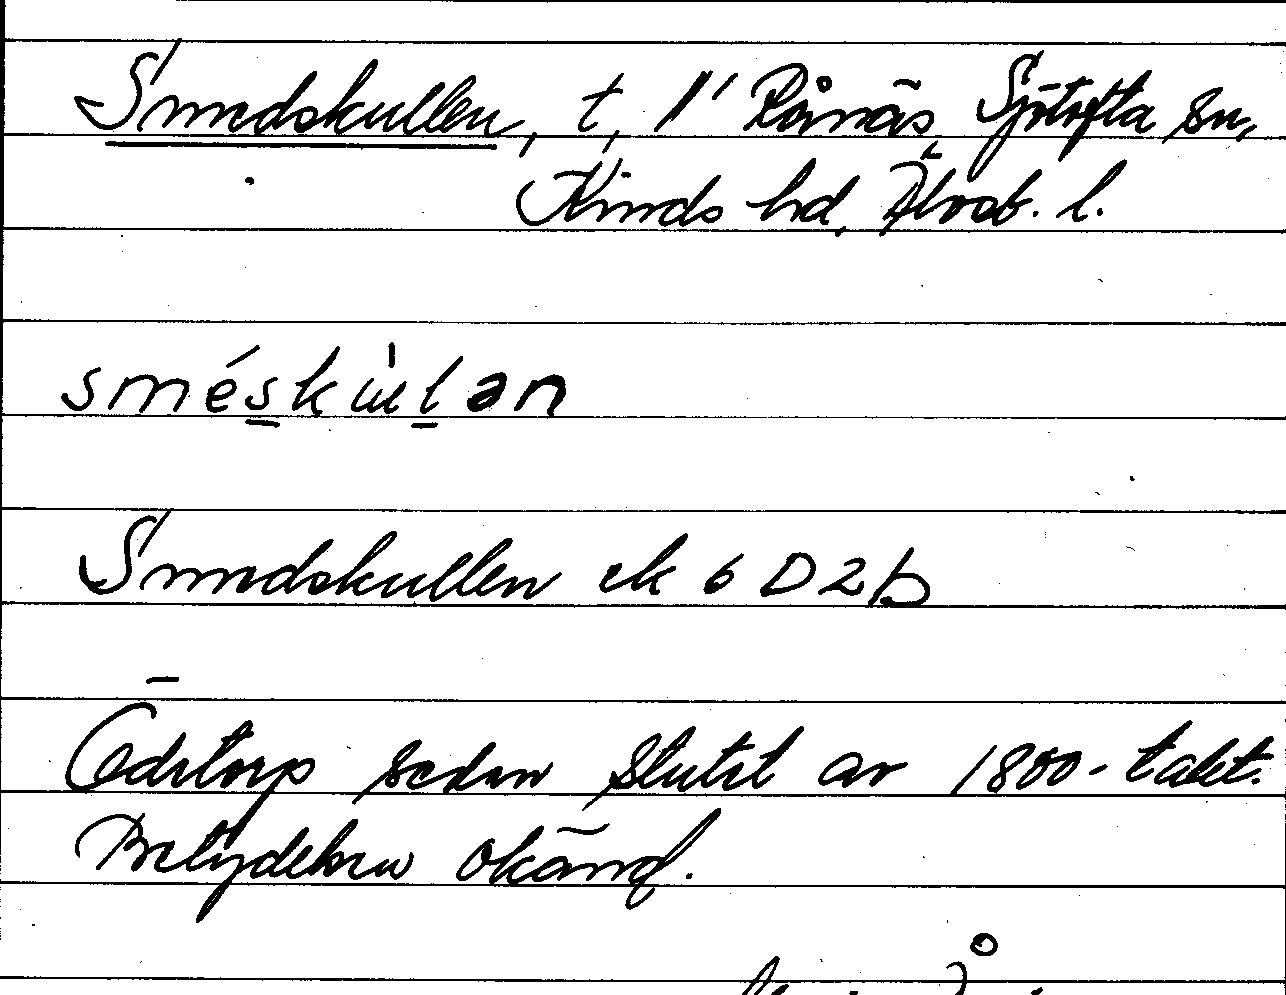 Smedskullen, t, 1' Rånäs, Sjötofta sn,
Kinds hd, Älvsb. l.
sméskùlan
Smedskullen ek 6 D 2 b
Ödetorp sedan slutet av 1800-talet.
Betydelsen okänd.